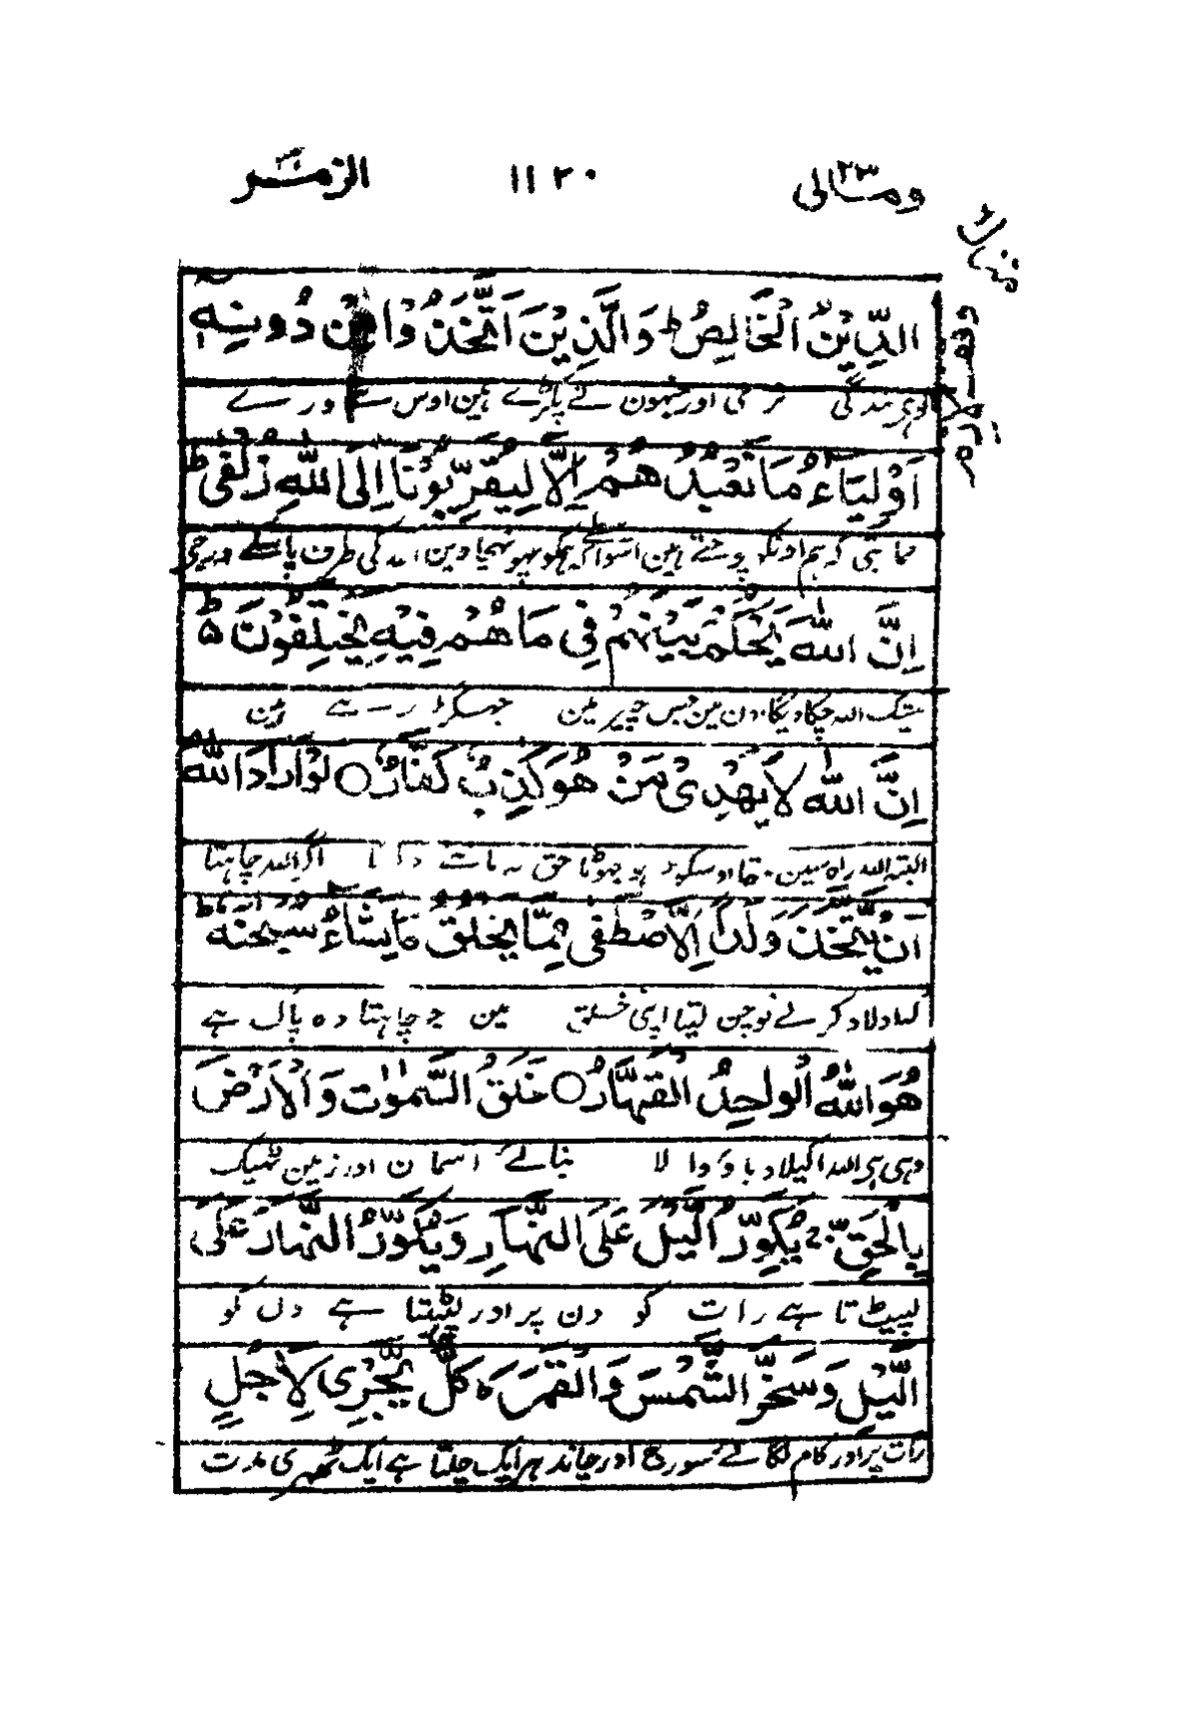 ومالی ٢٣ ١١٢٠ الزمر
منزل ٦
الدِّيْنُ الْخَالِصُ ط وَالَّذِيْنَ اتَّخَذُوْا مِنْ دُوْنِهٖۤ
بندگی نرمی اور جنہون نے پکڑے ہین اوس سے ورے
اَوْلِيَآءَ مَا نَعْبُدُهُمْ اِلَّا لِيُقَرِّبُوْنَاۤ اِلَى اللّٰهِ زُلْفٰى ط
حمایتی کہ ہم اونکو پوجتے ہین اسواسطے کہ ہمکو پہونچا دین اللہ کی طرف پاسکے درجی
اِنَّ اللّٰهَ يَحْكُمُ بَيْنَهُمْ فِيْ مَا هُمْ فِيْهِ يَخْتَلِفُوْنَ ط ۵
بیشک اللہ چکا دیگا اون مین جس چیز مین جہگڑ رہے ہین
اِنَّ اللّٰهَ لَا يَهْدِىْ مَنْ هُوَ كٰذِبٌ كَفَّارٌ ○ لَوْ اَرَادَ اللّٰهُ
البتہ اللہ راہ نہین اوسکو جو ہو جہوٹا حق نہ اگر اللہ چاہتا
اَنْ يَّتَّخِذَ وَلَدًا لَّاصْطَفٰى مِمَّا يَخْلُقُ مَا يَشَآءُ سُبْحٰنَهٗ ط
کہ اولاد کرلے تو چن لیتا اپنی خلق مین جو چاہتا وہ پاک ہے
هُوَ اللّٰهُ الْوَاحِدُ الْقَهَّارُ ○ خَلَقَ السَّمٰوٰتِ وَالْاَرْضَ
وہی ہی اللہ اکیلا دباؤ والا بنائے آسمان اور زمین ٹھیک
بِالْحَقِّ ج يُكَوِّرُ الَّيْلَ عَلَى النَّهَارِ وَيُكَوِّرُ النَّهَارَ عَلَى
لپیٹتا ہے رات کو دن پر اور لپٹیتا ہے دن کو
الَّيْلِ وَسَخَّرَ الشَّمْسَ وَالْقَمَرَ ط كُلٌّ يَّجْرِىْ لِاَجَلٍ
رات پر اور کام لگائے سورج اور چاند ہر ایک چلتا ہے ایک ٹھہری مدت